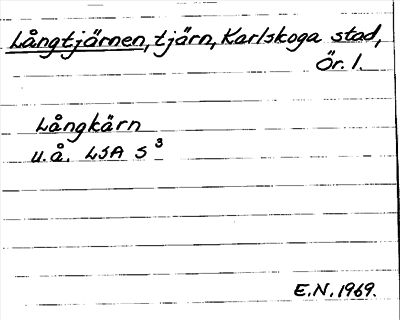 Långtjärnen, tjärn, Karlskoga stad,
Ör. l.
Långkärn
u.å. LSA S³
E.N. 1969.